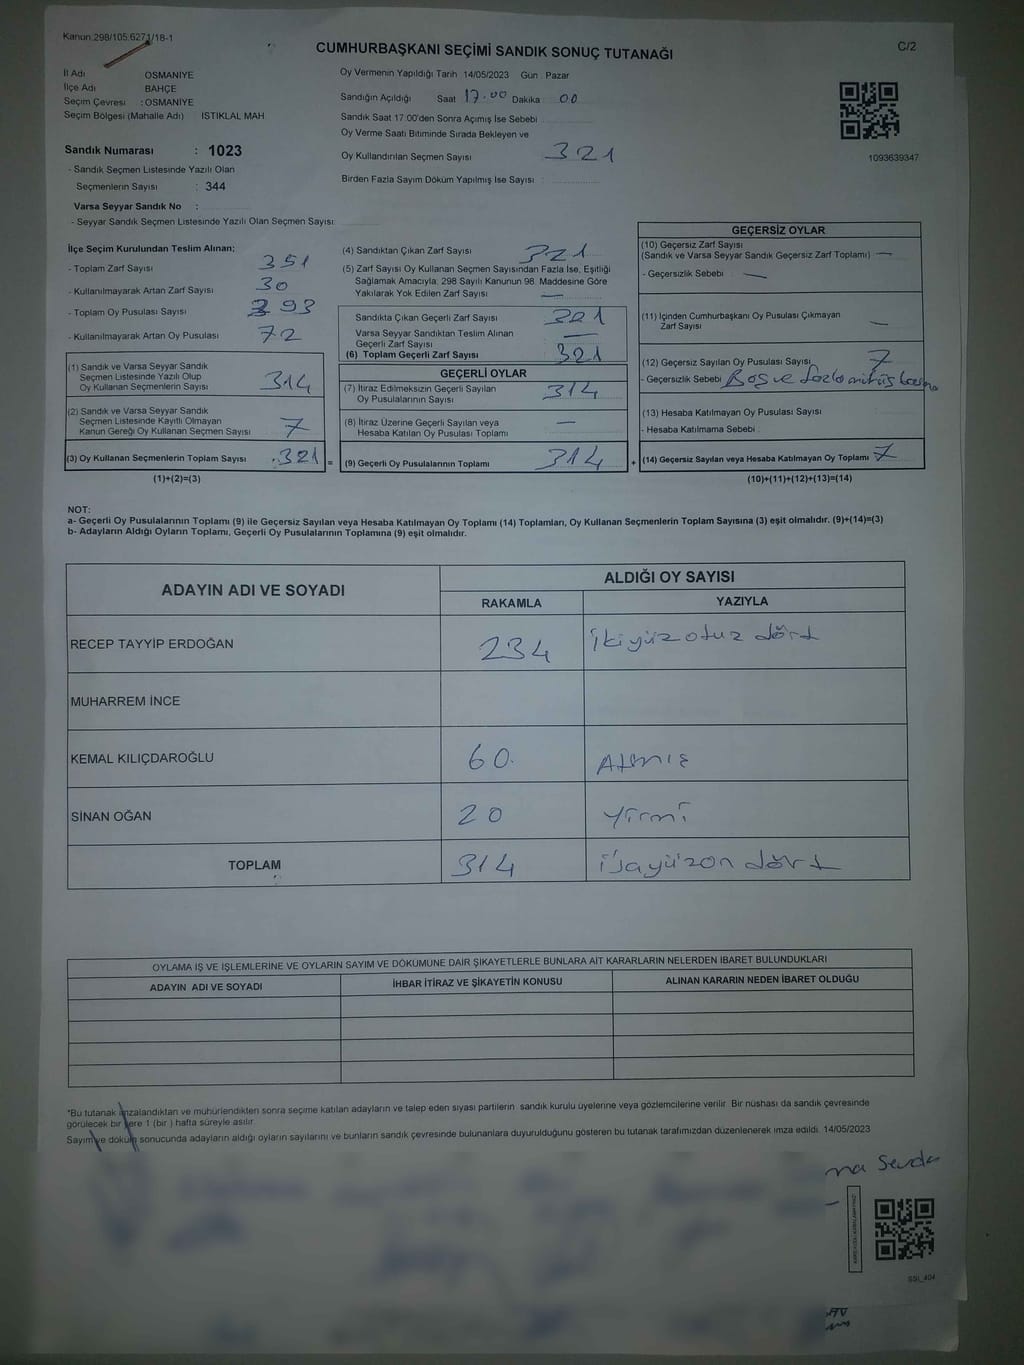 Kanun.298/105.6271/18-1
C/2
CUMHURBAŞKANI SEÇİMİ SANDIK SONUÇ TUTANAĞI
İl Adı OSMANIYE
İlçe Adı BAHÇE
Seçim Çevresi : OSMANIYE
Seçim Bölgesi (Mahalle Adı) ISTIKLAL MAH
Oy Vermenin Yapıldığı Tarih 14/05/2023 Gün : Pazar
Sandığın Açıldığı Saat 17.00 Dakika 00
Sandık Saat 17.00'den Sonra Açımış İse Sebebi
Oy Verme Saati Bitiminde Sırada Bekleyen ve
Oy Kullandırılan Seçmen Sayısı 321
Birden Fazla Sayım Döküm Yapılmış İse Sayısı :
1093639347
Sandık Numarası : 1023
- Sandık Seçmen Listesinde Yazılı Olan
Seçmenlerin Sayısı : 344
Varsa Seyyar Sandık No :
- Seyyar Sandık Seçmen Listesinde Yazılı Olan Seçmen Sayısı:
İlçe Seçim Kurulundan Teslim Alınan;
- Toplam Zarf Sayısı 351
- Kullanılmayarak Artan Zarf Sayısı 30
- Toplam Oy Pusulası Sayısı 393
- Kullanılmayarak Artan Oy Pusulası 72
(1) Sandık ve Varsa Seyyar Sandık
Seçmen Listesinde Yazılı Olup
Oy Kullanan Seçmenlerin Sayısı 314
(2) Sandık ve Varsa Seyyar Sandık
Seçmen Listesinde Kayıtlı Olmayan
Kanun Gereği Oy Kullanan Seçmen Sayısı 7
(3) Oy Kullanan Seçmenlerin Toplam Sayısı 321 =
(1)+(2)=(3)
(4) Sandıktan Çıkan Zarf Sayısı 321
(5) Zarf Sayısı Oy Kullanan Seçmen Sayısından Fazla İse, Eşitliği
Sağlamak Amacıyla; 298 Sayılı Kanunun 98. Maddesine Göre
Yakılarak Yok Edilen Zarf Sayısı —
Sandıkta Çıkan Geçerli Zarf Sayısı 321
Varsa Seyyar Sandıktan Teslim Alınan
Geçerli Zarf Sayısı —
(6) Toplam Geçerli Zarf Sayısı 321
GEÇERLİ OYLAR
(7) İtiraz Edilmeksizin Geçerli Sayılan
Oy Pusulalarının Sayısı 314
(8) İtiraz Üzerine Geçerli Sayılan veya
Hesaba Katılan Oy Pusulası Toplamı —
(9) Geçerli Oy Pusulalarının Toplamı 314 +
GEÇERSİZ OYLAR
(10) Geçersiz Zarf Sayısı
(Sandık ve Varsa Seyyar Sandık Geçersiz Zarf Toplamı) —
- Geçersizlik Sebebi : —
(11) İçinden Cumhurbaşkanı Oy Pusulası Çıkmayan
Zarf Sayısı —
(12) Geçersiz Sayılan Oy Pusulası Sayısı 7
- Geçersizlik Sebebi Boş ve fazla mühür
(13) Hesaba Katılmayan Oy Pusulası Sayısı
- Hesaba Katılmama Sebebi :
(14) Geçersiz Sayılan veya Hesaba Katılmayan Oy Toplamı 7
(10)+(11)+(12)+(13)=(14)
NOT:
a- Geçerli Oy Pusulalarının Toplamı (9) ile Geçersiz Sayılan veya Hesaba Katılmayan Oy Toplamı (14) Toplamları, Oy Kullanan Seçmenlerin Toplam Sayısına (3) eşit olmalıdır. (9)+(14)=(3)
b- Adayların Aldığı Oyların Toplamı, Geçerli Oy Pusulalarının Toplamına (9) eşit olmalıdır.
ADAYIN ADI VE SOYADI ALDIĞI OY SAYISI
RAKAMLA YAZIYLA
RECEP TAYYİP ERDOĞAN 234 ikiyüz otuz dört
MUHARREM İNCE
KEMAL KILIÇDAROĞLU 60. Atmış
SİNAN OĞAN 20 Yirmi
TOPLAM 314 üçyüzon dört
OYLAMA İŞ VE İŞLEMLERİNE VE OYLARIN SAYIM VE DÖKÜMÜNE DAİR ŞİKAYETLERLE BUNLARA AİT KARARLARIN NELERDEN İBARET BULUNDUKLARI
ADAYIN ADI VE SOYADI İHBAR İTİRAZ VE ŞİKAYETİN KONUSU ALINAN KARARIN NEDEN İBARET OLDUĞU
*Bu tutanak imzalandıktan ve mühürlendikten sonra seçime katılan adayların ve talep eden siyasi partilerin sandık kurulu üyelerine veya gözlemcilerine verilir. Bir nüshası da sandık çevresinde
görülecek bir yere 1 (bir ) hafta süreyle asılır.
Sayım ve döküm sonucunda adayların aldığı oyların sayılarını ve bunların sandık çevresinde bulunanlara duyurulduğunu gösteren bu tutanak tarafımızdan düzenlenerek imza edildi. 14/05/2023
na Sevda
SSI_404